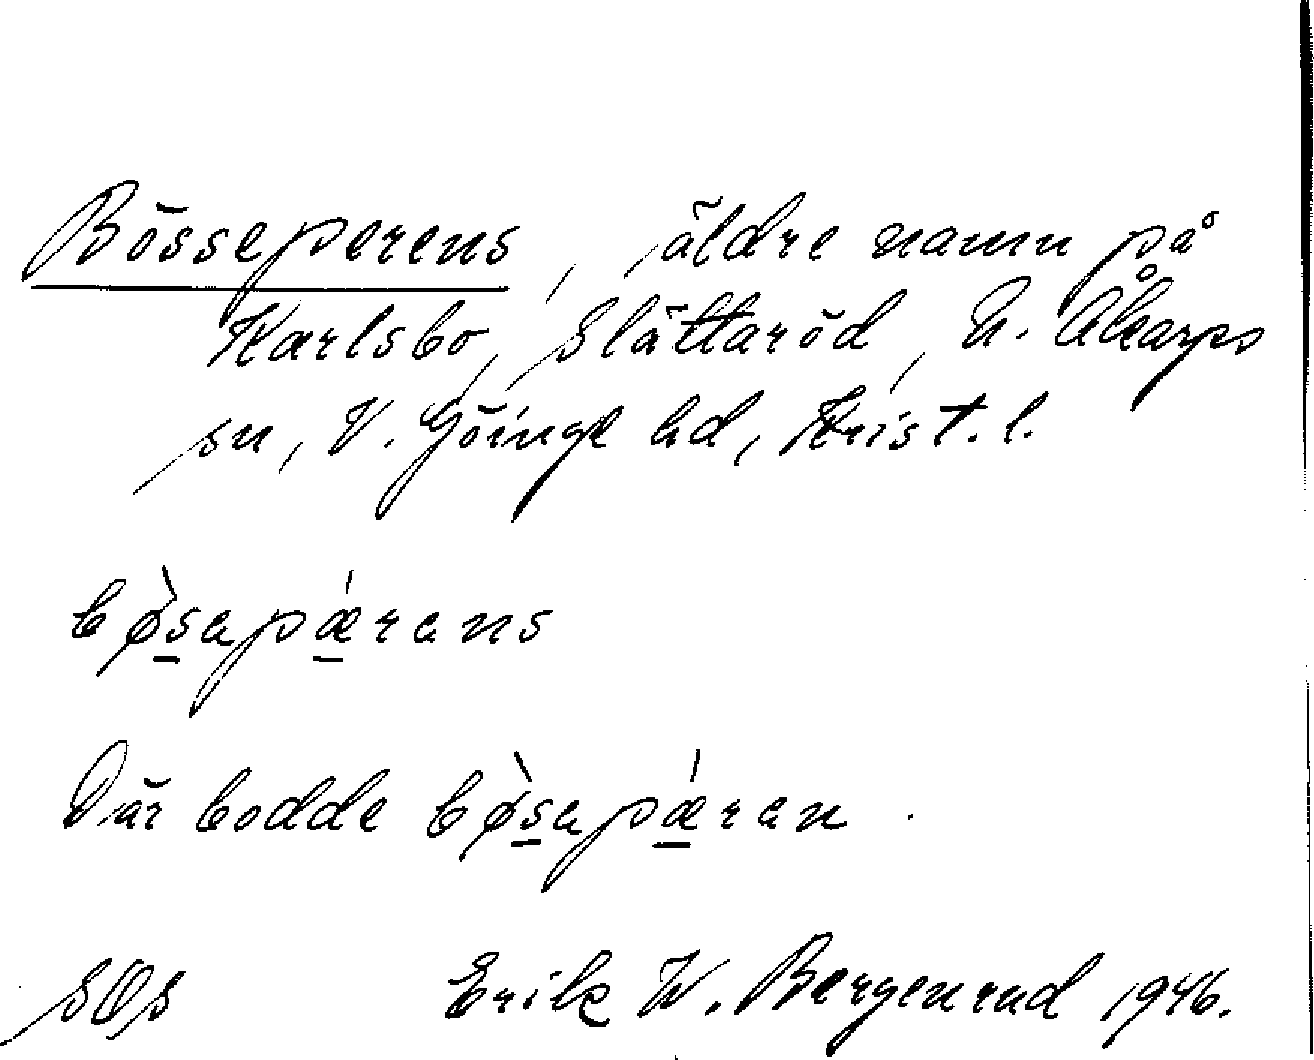 Bösseperens, äldre namn på
Karlsbo, Slättaröd, N. Åkarps
sn, V. Göinge hd, Krist. l.
bø̀sapǽrans
Där bodde bø̀sapǽran.
Erik W. Bergenrud 1946.